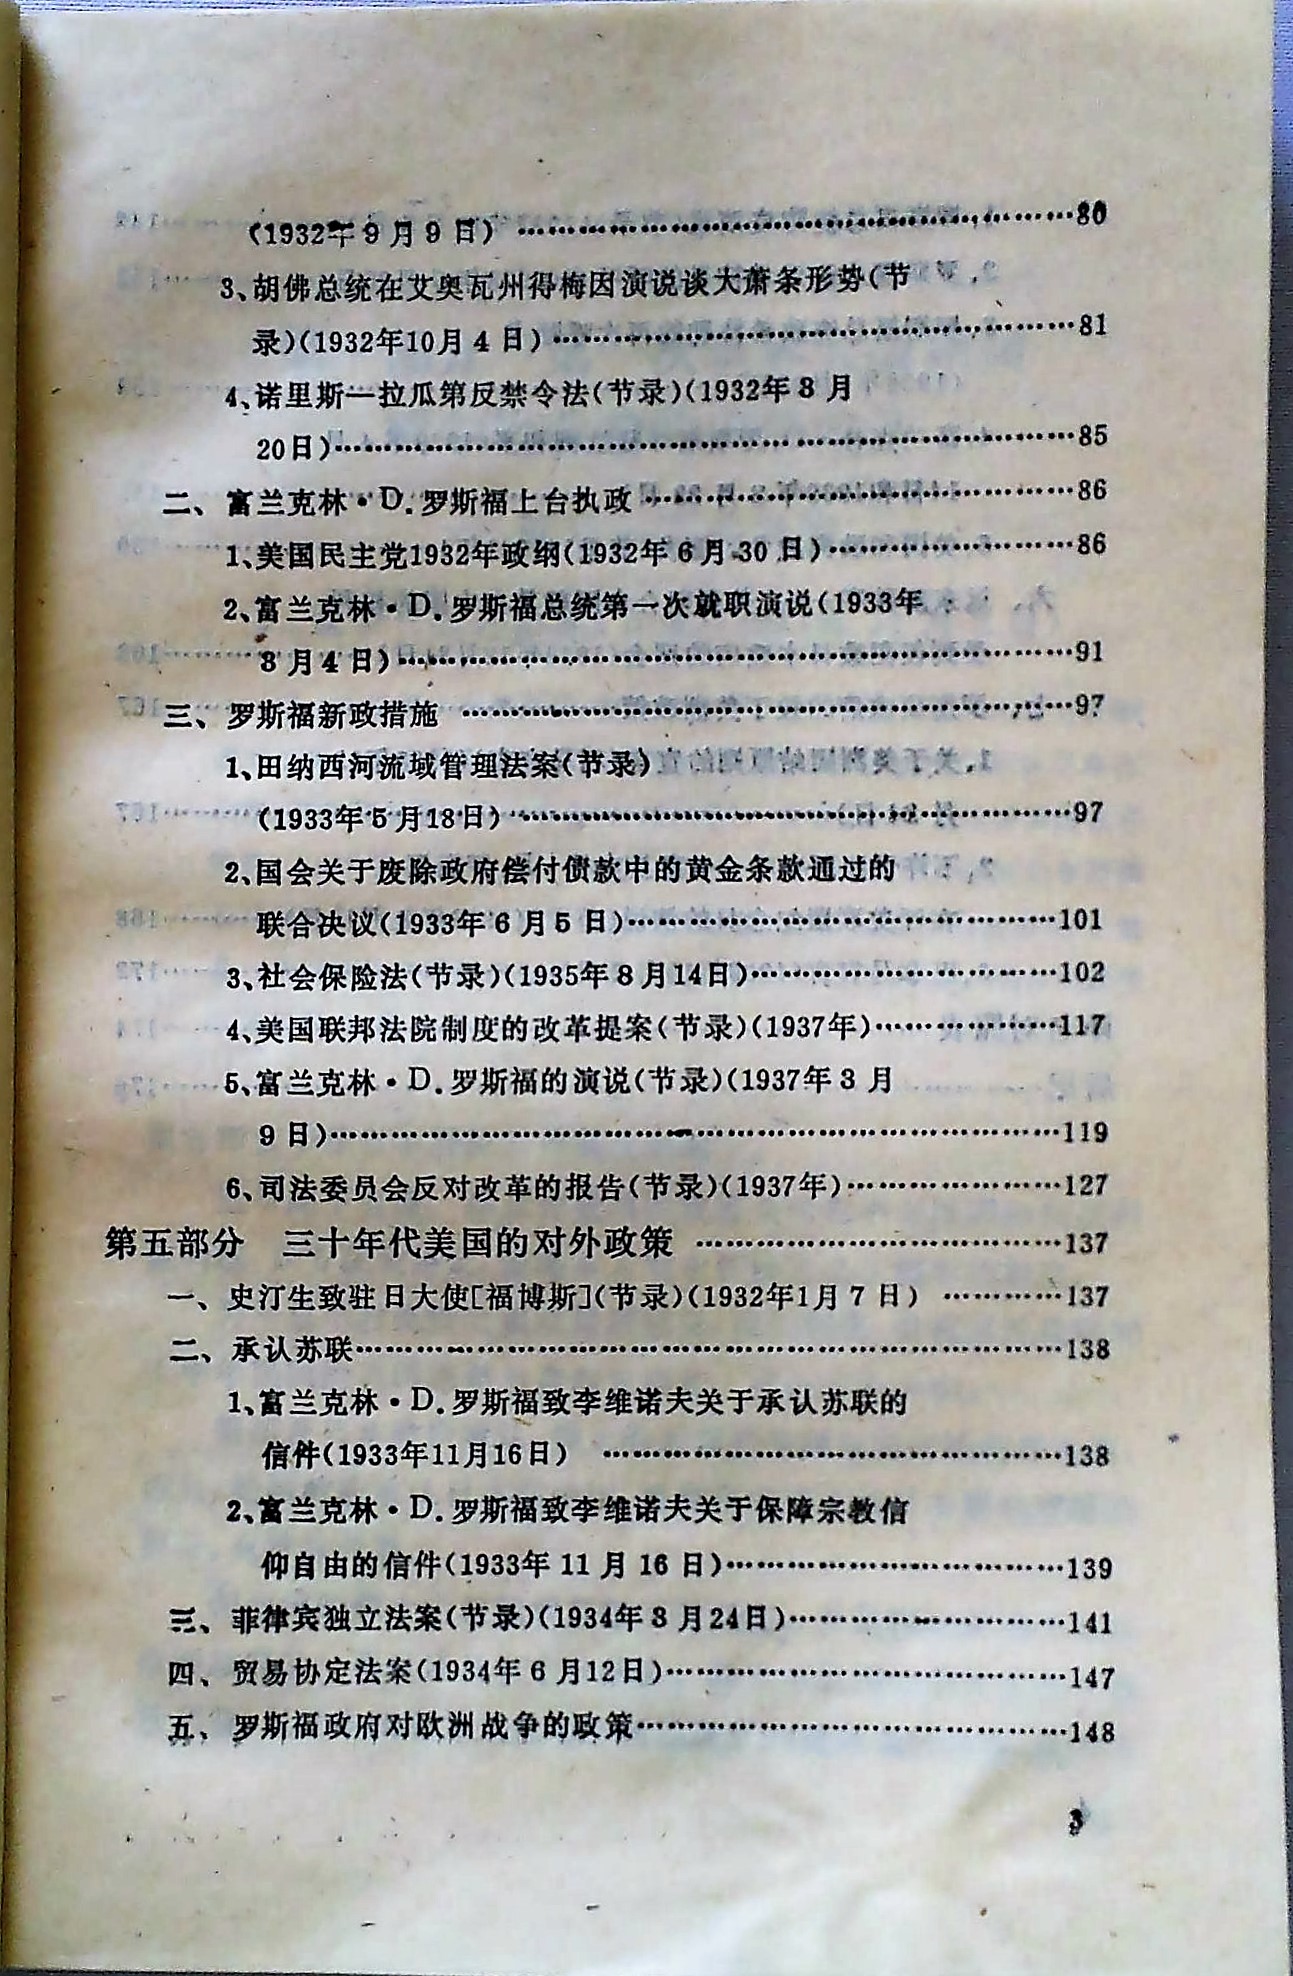 (1932年9月9日) …………………………………………80
3、胡佛总统在艾奥瓦州得梅因演说谈大萧条形势(节
录)(1932年10月4日)…………………………………………81
4、诺里斯—拉瓜第反禁令法(节录)(1932年3月
20日)…………………………………………85
二、富兰克林·D.罗斯福上台执政…………………………………………86
1、美国民主党1932年政纲(1932年6月30日)……………………86
2、富兰克林·D.罗斯福总统第一次就职演说(1933年
3月4日)…………………………………………91
三、罗斯福新政措施 …………………………………………97
1、田纳西河流域管理法案(节录)
(1933年5月18日)…………………………………………97
2、国会关于废除政府偿付债款中的黄金条款通过的
联合决议(1933年6月5日)…………………………………………101
3、社会保险法(节录)(1935年8月14日)……………………………102
4、美国联邦法院制度的改革提案(节录)(1937年)………………117
5、富兰克林·D.罗斯福的演说(节录)(1937年3月
9日)…………………………………………119
6、司法委员会反对改革的报告(节录)(1937年)…………………127
第五部分 三十年代美国的对外政策 ………………………………137
一、史汀生致驻日大使[福博斯](节录)(1932年1月7日) …………137
二、承认苏联…………………………………………138
1、富兰克林·D.罗斯福致李维诺夫关于承认苏联的
信件(1933年11月16日) …………………………………………138
2、富兰克林·D.罗斯福致李维诺夫关于保障宗教信
仰自由的信件(1933年11月16日)………………………………139
三、菲律宾独立法案(节录)(1934年3月24日)………………………141
四、贸易协定法案(1934年6月12日)…………………………………147
五、罗斯福政府对欧洲战争的政策……………………………………148
3